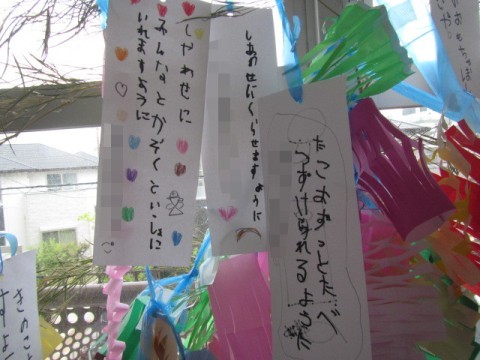 しやわせに
みんなとかぞくといっしょに
いれますように
しあわせにくらせます ように
たこをずっとたべ
つずけられるように
きのこ
すよ
おもちゃ